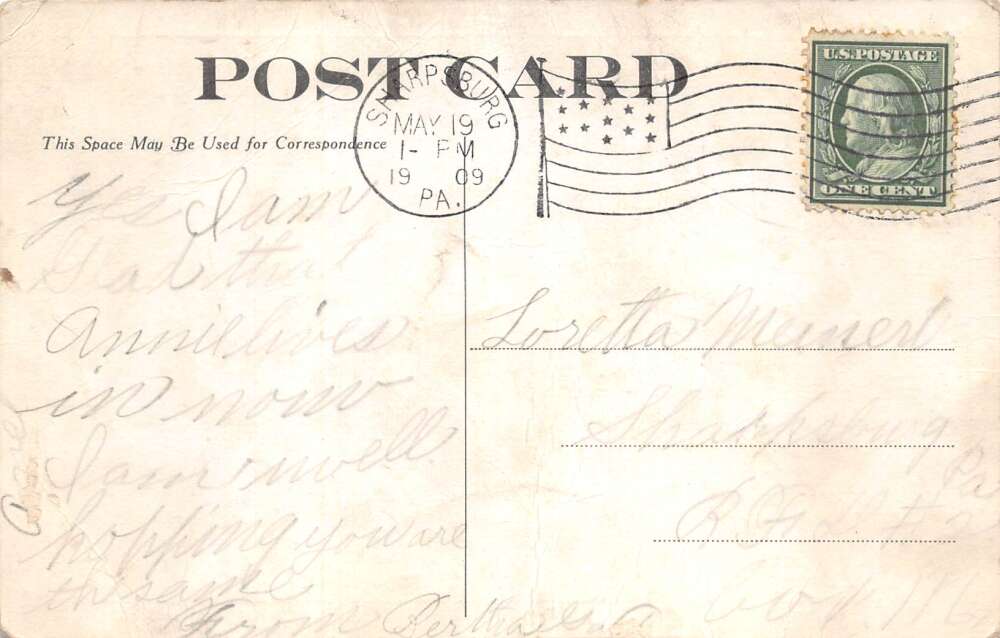 POST CARD
SHARPSBURG
MAY 19
1- PM
19 09
PA.
U.S. POSTAGE
ONE CENT
This Space May Be Used for Correspondence
Yes I am
Glad that
Annie lives
in now
I am well
hopping you are
the same
From Bertha
Loretta Meinert
Sharpsburg
Pa
R. F. D. #2